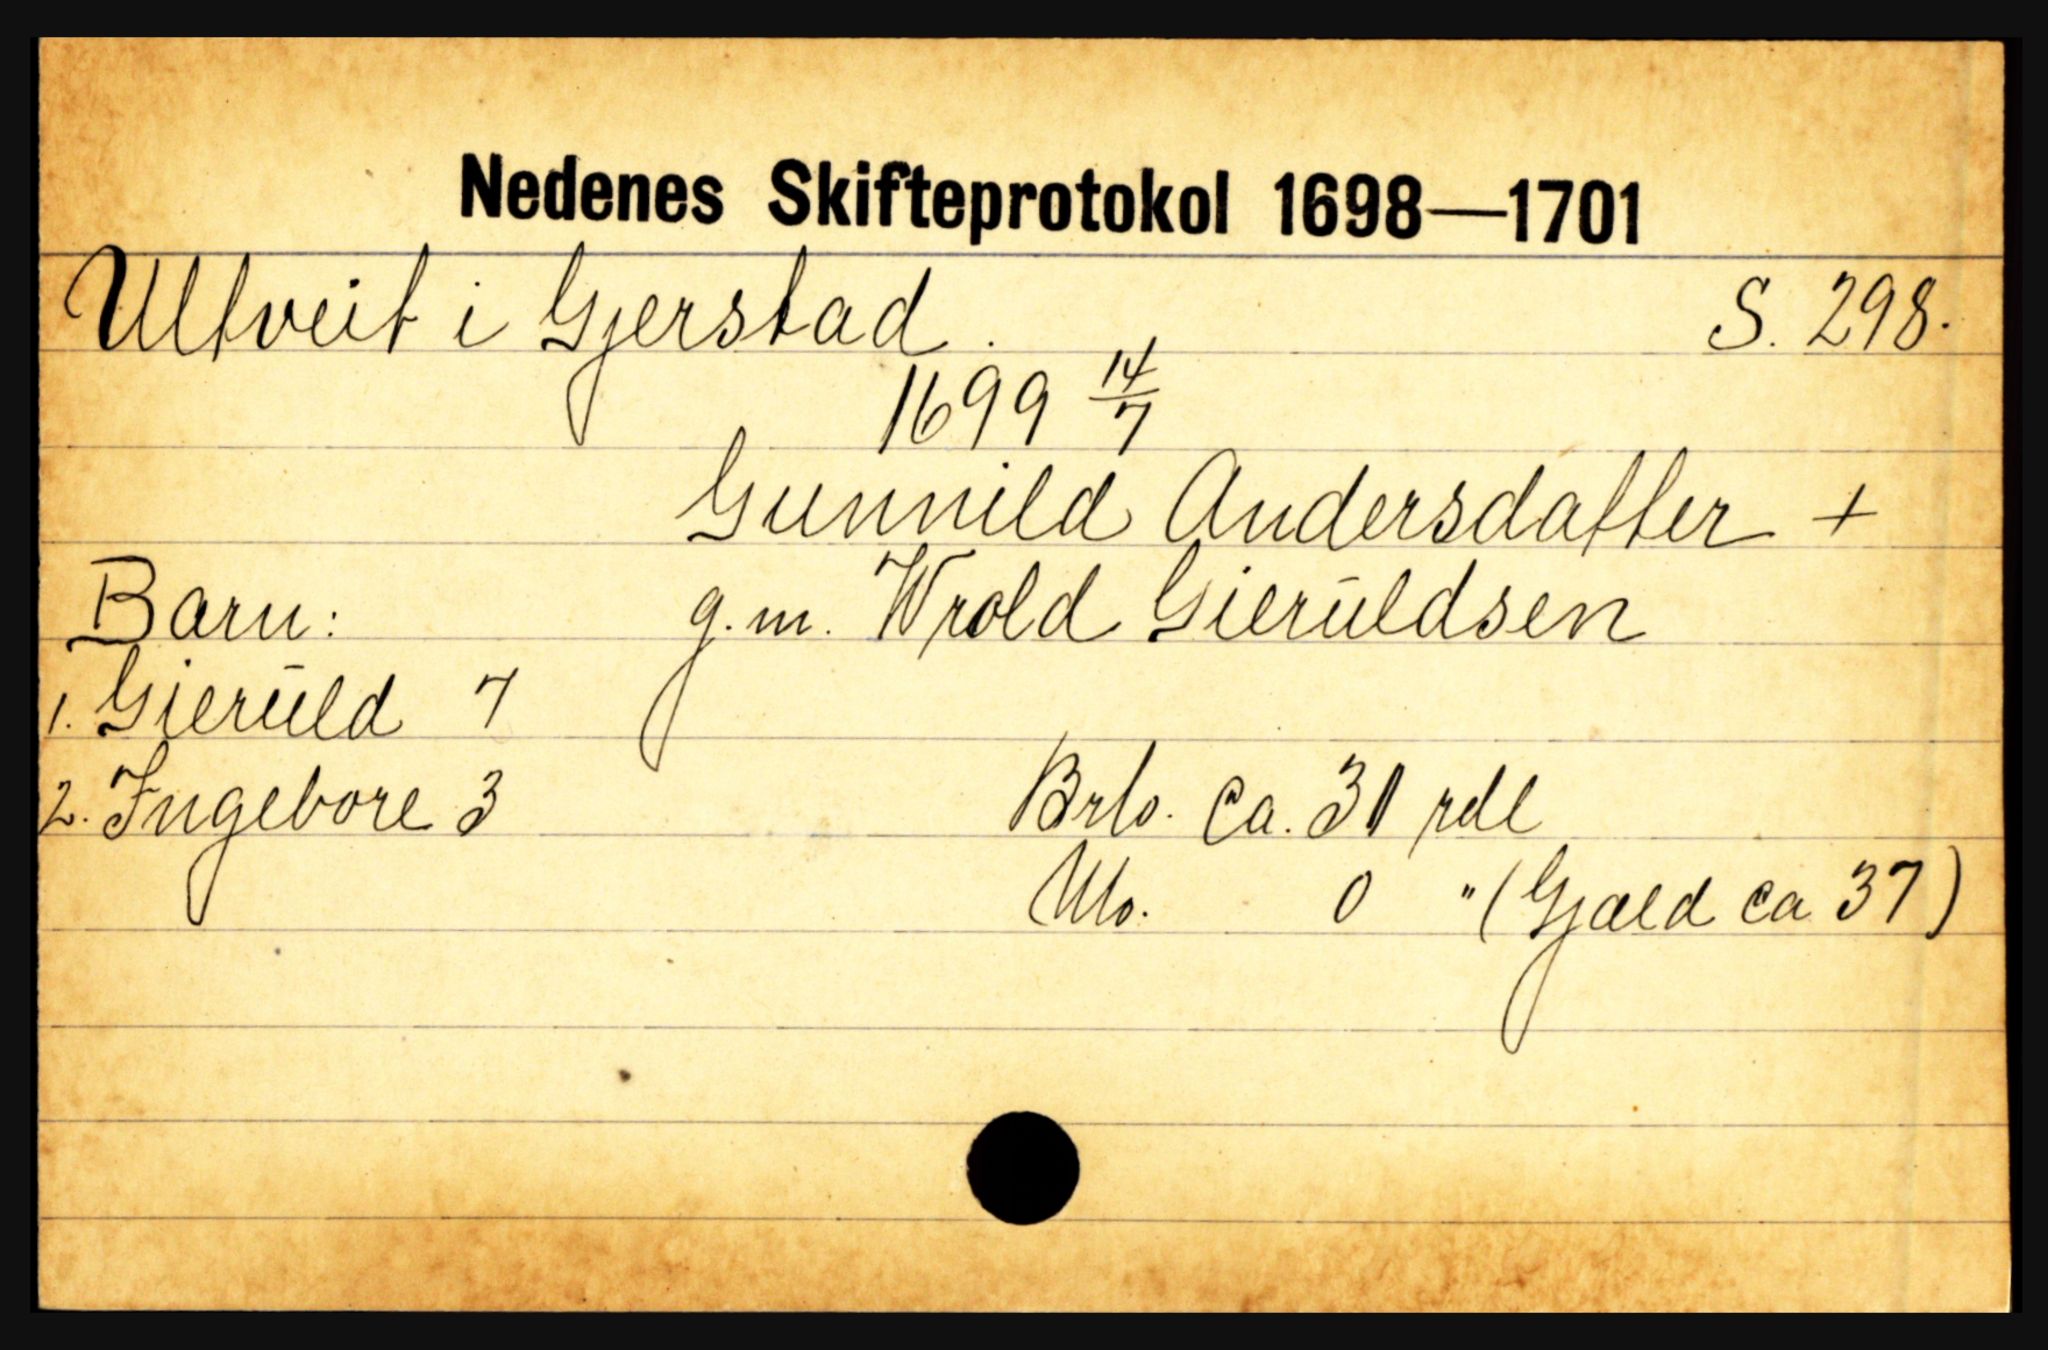 Nedenes Skifteprotokol 1698—1701
Ultveit i Gjerstad. S. 298.
1699 14/7
Gunnild Andersdatter +
Barn: g.m. Wrold Gierūldsen
1. Gierūld 7
2. Ingebore 3 Brlo. Ca. 31 rdl
Nlo. 0 " (Gjæld ca 37)